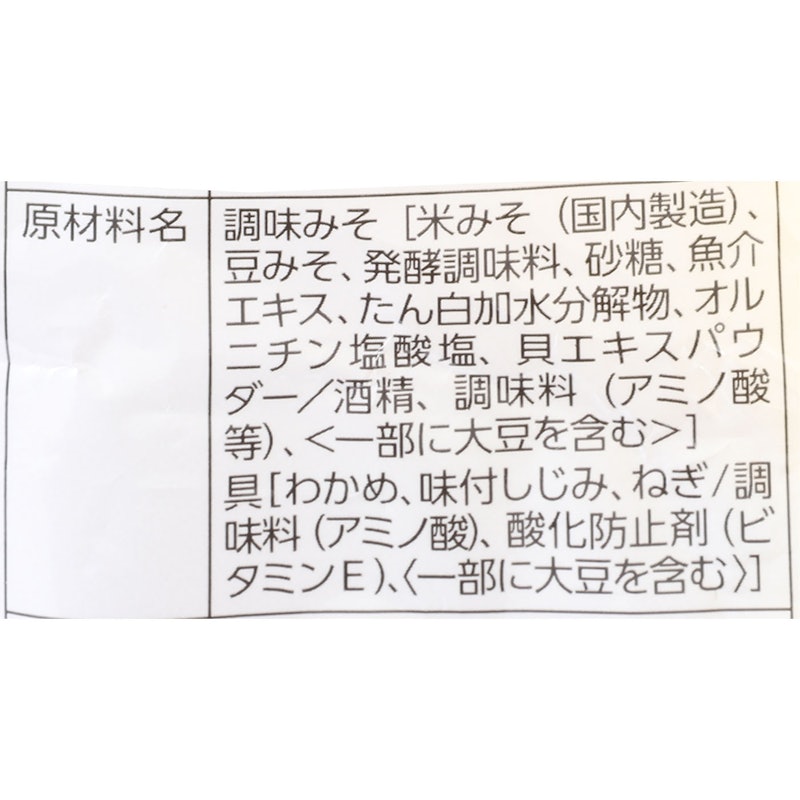 原材料名
調味みそ［米みそ（国内製造）、
豆みそ、発酵調味料、砂糖、魚介
エキス、たん白加水分解物、オル
ニチン塩酸塩、貝エキスパウ
ダー／酒精、調味料（アミノ酸
等）、＜一部に大豆を含む＞］
具［わかめ、味付しじみ、ねぎ/調
味料（アミノ酸）、酸化防止剤（ビ
タミンE）、〈一部に大豆を含む〉］